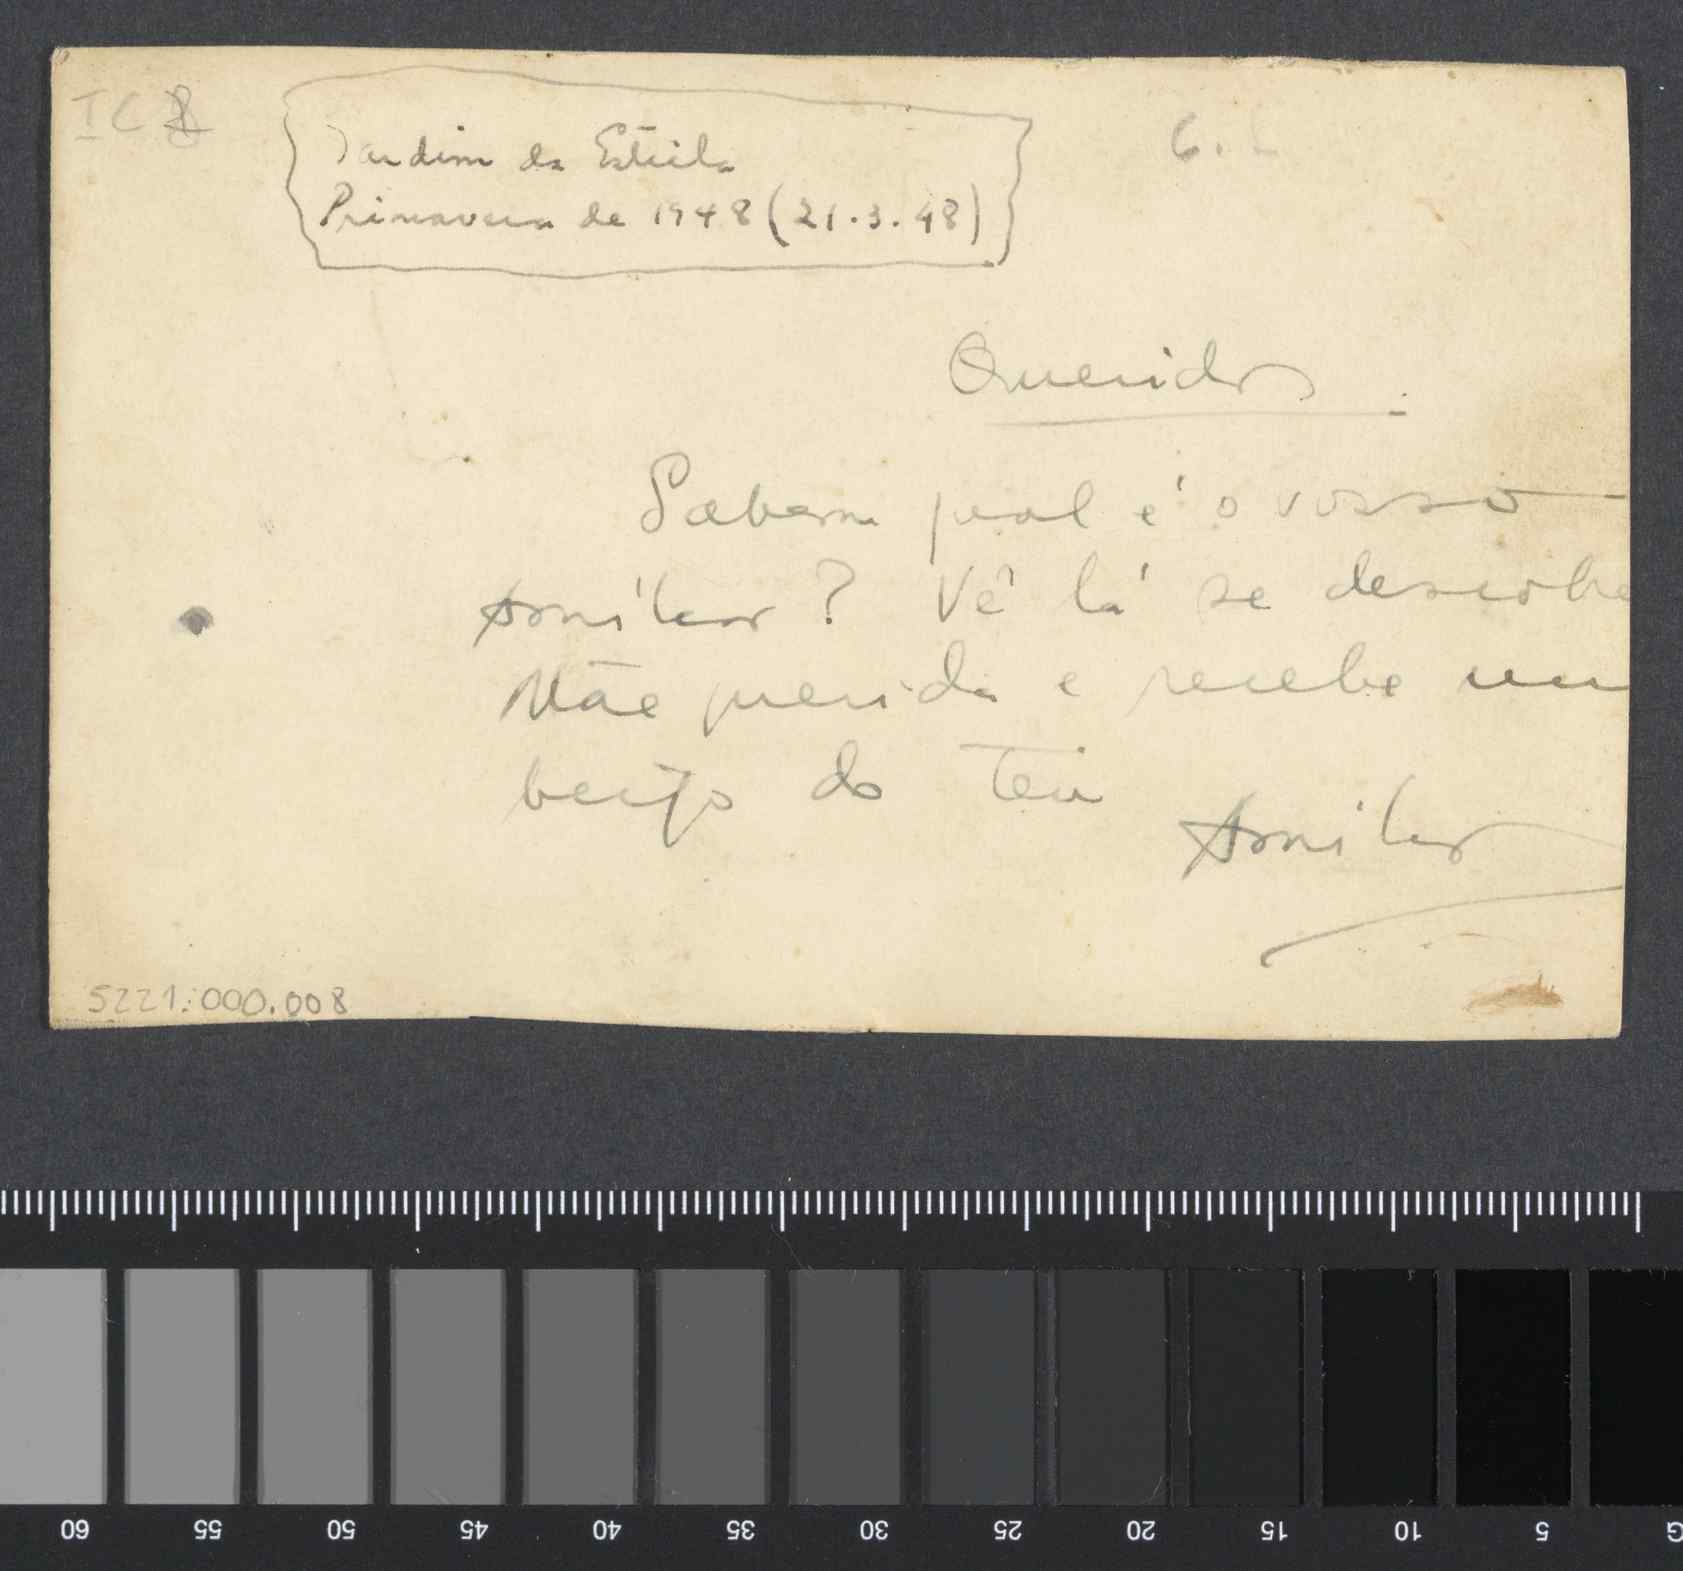 IC
Jardim da Estrela
Primavera de 1948 (21.3.48)
6.
Queridos
Sabem qual é o vosso
Amílcar? Vê lá se descobre
Mãe querida e recebe um
beijo do teu
Amílcar
5221.000.008
60 55 50 45 40 35 30 25 20 15 10 5 G